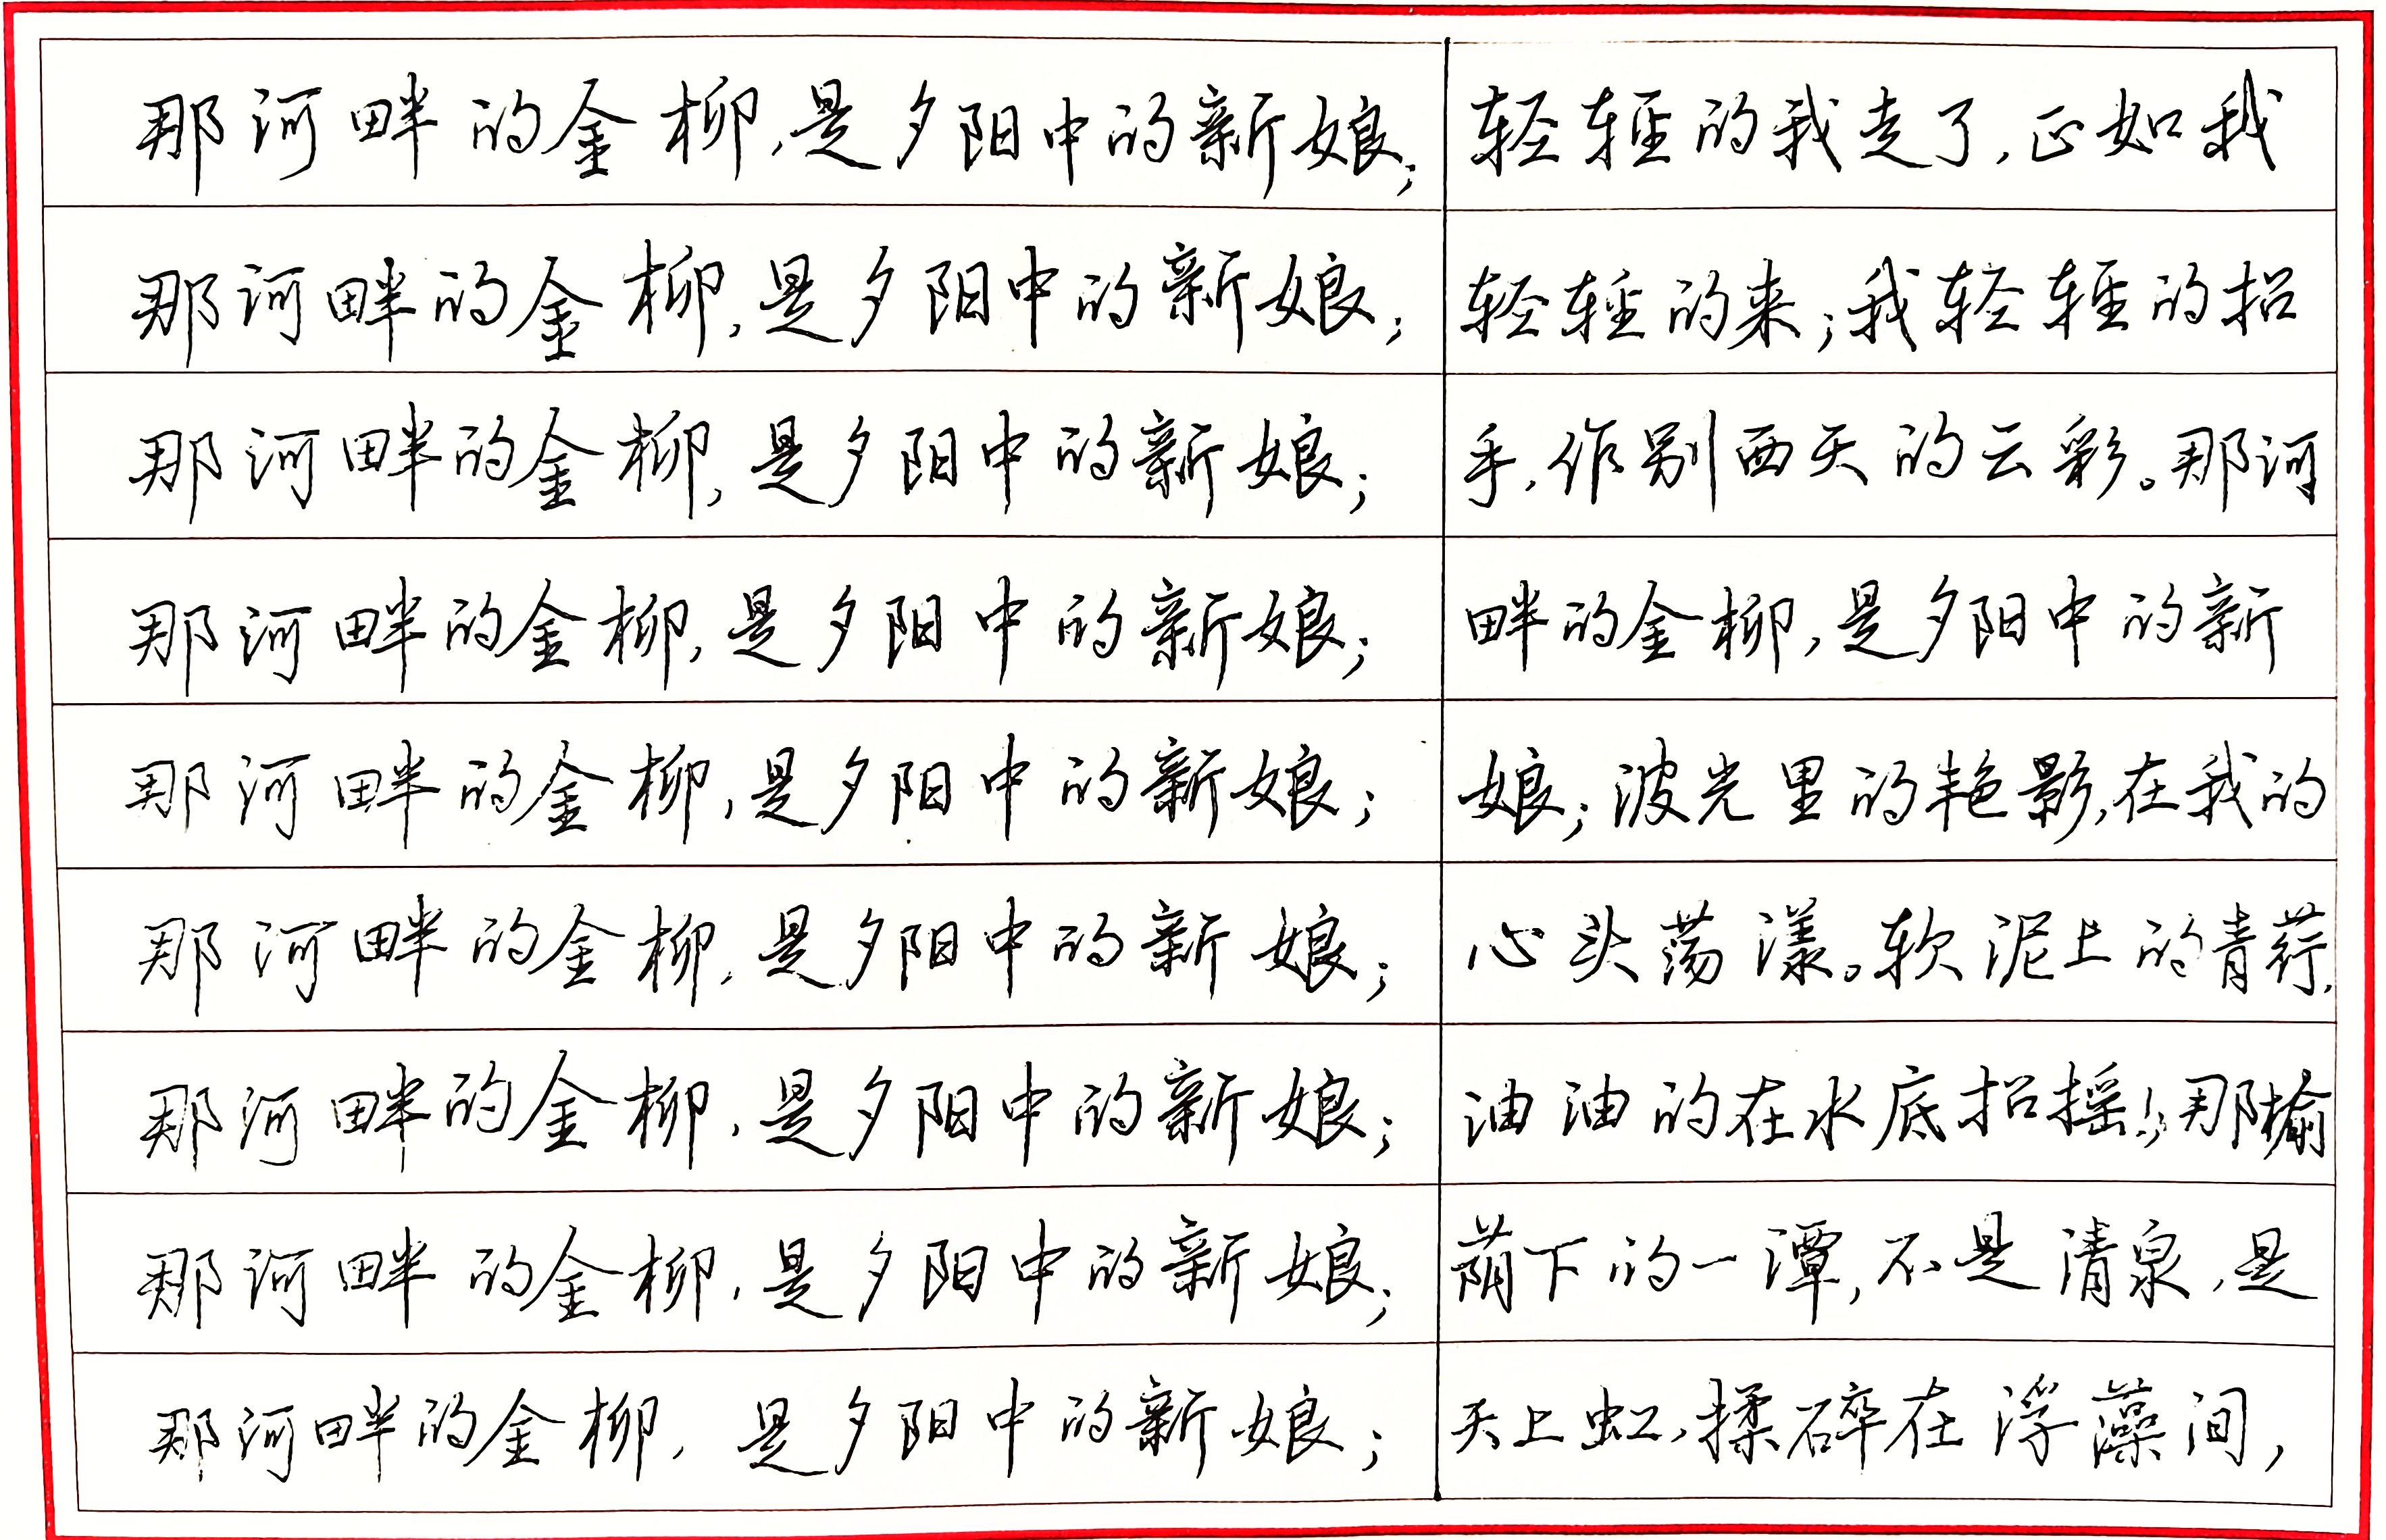 那河畔的金柳,是夕阳中的新娘;
那河畔的金柳,是夕阳中的新娘;
那河畔的金柳,是夕阳中的新娘;
那河畔的金柳,是夕阳中的新娘;
那河畔的金柳,是夕阳中的新娘;
那河畔的金柳,是夕阳中的新娘;
那河畔的金柳,是夕阳中的新娘;
那河畔的金柳,是夕阳中的新娘;
那河畔的金柳,是夕阳中的新娘;
轻轻的我走了,正如我
轻轻的来;我轻轻的招
手,作别西天的云彩。那河
畔的金柳,是夕阳中的新
娘;波光里的艳影,在我的
心头荡漾。软泥上的青荇,
油油的在水底招摇;那榆
荫下的一潭,不是清泉,是
天上虹,揉碎在浮藻间,